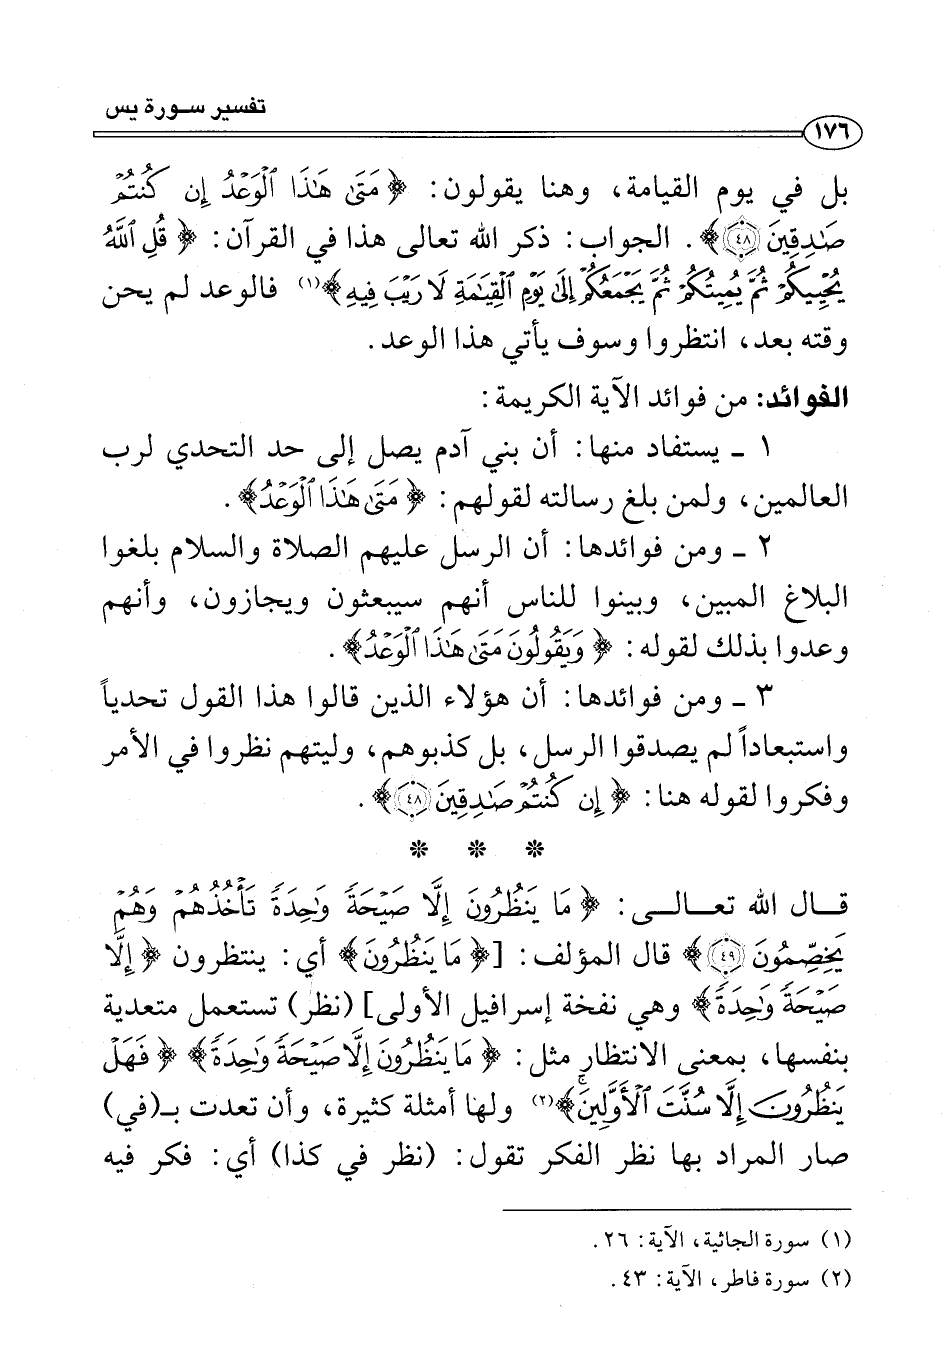 تفسير سورة يس
١٧٦
بل في يوم القيامة، وهنا يقولون: ﴿مَتَىٰ هَٰذَا ٱلْوَعْدُ إِن كُنتُمْ
صَٰدِقِينَ ٤٨﴾. الجواب: ذكر الله تعالى هذا في القرآن: ﴿قُلِ ٱللَّهُ
يُحْيِيكُمْ ثُمَّ يُمِيتُكُمْ ثُمَّ يَجْمَعُكُمْ إِلَىٰ يَوْمِ ٱلْقِيَٰمَةِ لَا رَيْبَ فِيهِ﴾(١) فالوعد لم يحن
وقته بعد، انتظروا وسوف يأتي هذا الوعد.
الفوائد: من فوائد الآية الكريمة:
١ ـ يستفاد منها: أن بني آدم يصل إلى حد التحدي لرب
العالمين، ولمن بلغ رسالته لقولهم: ﴿مَتَىٰ هَٰذَا ٱلْوَعْدُ﴾.
٢ ـ ومن فوائدها: أن الرسل عليهم الصلاة والسلام بلغوا
البلاغ المبين، وبينوا للناس أنهم سيبعثون ويجازون، وأنهم
وعدوا بذلك لقوله: ﴿وَيَقُولُونَ مَتَىٰ هَٰذَا ٱلْوَعْدُ﴾.
٣ ـ ومن فوائدها: أن هؤلاء الذين قالوا هذا القول تحدياً
واستبعاداً لم يصدقوا الرسل، بل كذبوهم، وليتهم نظروا في الأمر
وفكروا لقوله هنا: ﴿إِن كُنتُمْ صَٰدِقِينَ ٤٨﴾.
* * *
قال الله تعالى: ﴿مَا يَنظُرُونَ إِلَّا صَيْحَةً وَٰحِدَةً تَأْخُذُهُمْ وَهُمْ
يَخِصِّمُونَ ٤٩﴾ قال المؤلف: [﴿مَا يَنظُرُونَ﴾ أي: ينتظرون ﴿إِلَّا
صَيْحَةً وَٰحِدَةً﴾ وهي نفخة إسرافيل الأولى] (نظر) تستعمل متعدية
بنفسها، بمعنى الانتظار مثل: ﴿مَا يَنظُرُونَ إِلَّا صَيْحَةً وَٰحِدَةً﴾ ﴿فَهَلْ
يَنظُرُونَ إِلَّا سُنَّتَ ٱلْأَوَّلِينَ﴾(٢) ولها أمثلة كثيرة، وأن تعدت بـ(في)
صار المراد بها نظر الفكر تقول: (نظر في كذا) أي: فكر فيه
(١) سورة الجاثية، الآية: ٢٦.
(٢) سورة فاطر، الآية: ٤٣.